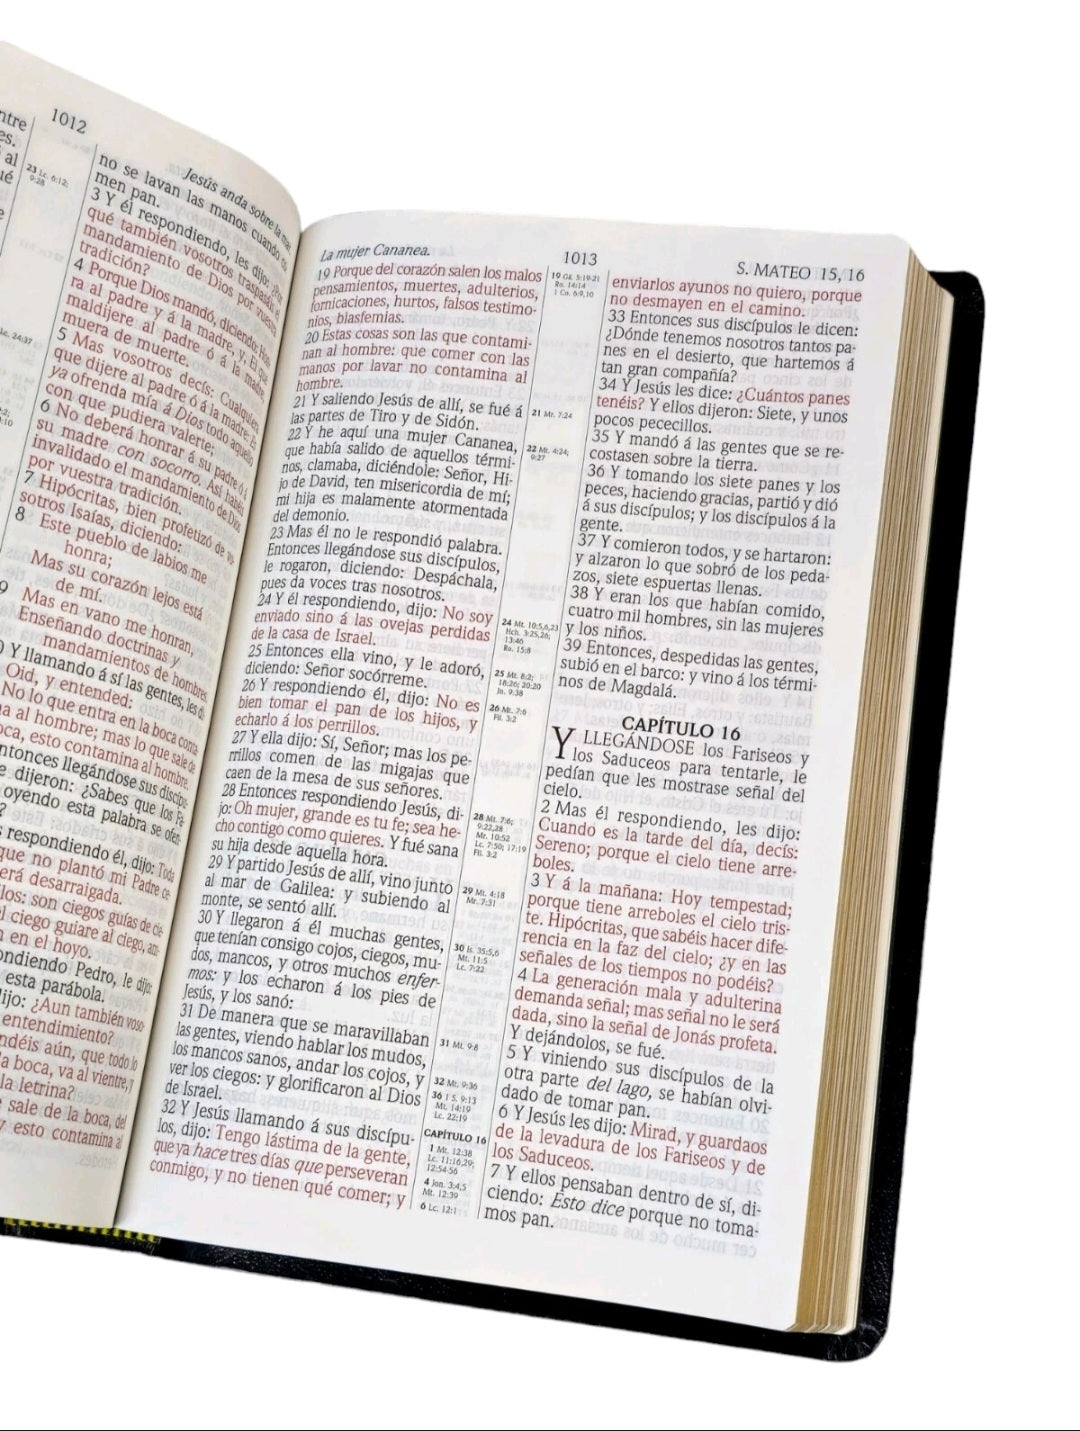 ntre
es.
al
ué
23 Lc. 6:12;
9:28
Lc. 24:37
1012
Jesús anda sobre la mar
no se lavan las manos cuando co
men pan.
3 Y él respondiendo, les dijo: ¿Por
qué también vosotros traspasáis el
mandamiento de Dios por vuestra
tradición?
4 Porque Dios mandó, diciendo: Hon-
ra al padre y á la madre, y, El que
maldijere al padre ó á la madre,
muera de muerte.
5 Mas vosotros decís: Cualquiera
que dijere al padre ó á la madre: Es
ya ofrenda mía á Dios todo aquello
con que pudiera valerte;
6 No deberá honrar á su padre ó á
su madre con socorro. Así habéis
invalidado el mandamiento de Dios
por vuestra tradición.
7 Hipócritas, bien profetizó de vo-
sotros Isaías, diciendo:
8 Este pueblo de labios me
honra;
Mas su corazón lejos está
de mí.
9 Mas en vano me honran,
Enseñando doctrinas y
mandamientos de hombres.
Y llamando á sí las gentes, les di
Oid, y entended:
No lo que entra en la boca conta
na al hombre; mas lo que sale de
oca, esto contamina al hombre.
ntonces llegándose sus discípu
e dijeron: ¿Sabes que los Fa
oyendo esta palabra se ofen
?
s respondiendo él, dijo: Toda
que no plantó mi Padre ce
erá desarraigada.
los: son ciegos guías de cie
el ciego guiare al ciego, am
n en el hoyo.
ondiendo Pedro, le dijo:
esta parábola.
dijo: ¿Aun también voso
entendimiento?
ndéis aún, que todo lo
a boca, va al vientre, y
la letrina?
e sale de la boca, del
y esto contamina al
La mujer Cananea.
1013
S. MATEO 15, 16
19 Porque del corazón salen los malos
pensamientos, muertes, adulterios,
fornicaciones, hurtos, falsos testimo-
nios, blasfemias.
20 Estas cosas son las que contami-
nan al hombre: que comer con las
manos por lavar no contamina al
hombre.
21 Y saliendo Jesús de allí, se fué á
las partes de Tiro y de Sidón.
22 Y he aquí una mujer Cananea,
que había salido de aquellos térmi-
nos, clamaba, diciéndole: Señor, Hi-
jo de David, ten misericordia de mí;
mi hija es malamente atormentada
del demonio.
23 Mas él no le respondió palabra.
Entonces llegándose sus discípulos,
le rogaron, diciendo: Despáchala,
pues da voces tras nosotros.
24 Y él respondiendo, dijo: No soy
enviado sino á las ovejas perdidas
de la casa de Israel.
25 Entonces ella vino, y le adoró,
diciendo: Señor socórreme.
26 Y respondiendo él, dijo: No es
bien tomar el pan de los hijos, y
echarlo á los perrillos.
27 Y ella dijo: Sí, Señor; mas los pe-
rrillos comen de las migajas que
caen de la mesa de sus señores.
28 Entonces respondiendo Jesús, di-
jo: Oh mujer, grande es tu fe; sea he-
cho contigo como quieres. Y fué sana
su hija desde aquella hora.
29 Y partido Jesús de allí, vino junto
al mar de Galilea: y subiendo al
monte, se sentó allí.
30 Y llegaron á él muchas gentes,
que tenían consigo cojos, ciegos, mu-
dos, mancos, y otros muchos enfer-
mos: y los echaron á los pies de
Jesús, y los sanó:
31 De manera que se maravillaban
las gentes, viendo hablar los mudos,
los mancos sanos, andar los cojos, y
ver los ciegos: y glorificaron al Dios
de Israel.
32 Y Jesús llamando á sus discípu-
los, dijo: Tengo lástima de la gente,
que ya hace tres días que perseveran
conmigo, y no tienen qué comer; y
19 Gá. 5:19-21
Ro. 14:14
1 Co. 6:9,10
21 Mr. 7:24
22 Mt. 4:24;
9:27
24 Mt. 10:5,6,23
Hch. 3:25,26;
13:46
Ro. 15:8
25 Mt. 8:2;
18:26; 20:20
Jn. 9:38
26 Mt. 7:6
Fil. 3:2
28 Mt. 7:6;
9:22,28
Mr. 10:52
Lc. 7:50; 17:19
Fil. 3:2
29 Mt. 4:18
Mr. 7:31
30 Is. 35:5,6
Mt. 11:5
Lc. 7:22
31 Mt. 9:8
32 Mt. 9:36
36 1 S. 9:13
Mt. 14:19
Lc. 22:19
CAPÍTULO 16
1 Mt. 12:38
Lc. 11:16,29;
12:54-56
4 Jon. 3:4,5
Mt. 12:39
6 Lc. 12:1
enviarlos ayunos no quiero, porque
no desmayen en el camino.
33 Entonces sus discípulos le dicen:
¿Dónde tenemos nosotros tantos pa-
nes en el desierto, que hartemos á
tan gran compañía?
34 Y Jesús les dice: ¿Cuántos panes
tenéis? Y ellos dijeron: Siete, y unos
pocos pececillos.
35 Y mandó á las gentes que se re-
costasen sobre la tierra.
36 Y tomando los siete panes y los
peces, haciendo gracias, partió y dió
á sus discípulos; y los discípulos á la
gente.
37 Y comieron todos, y se hartaron:
y alzaron lo que sobró de los peda-
zos, siete espuertas llenas.
38 Y eran los que habían comido,
cuatro mil hombres, sin las mujeres
y los niños.
39 Entonces, despedidas las gentes,
subió en el barco: y vino á los térmi-
nos de Magdalá.
CAPÍTULO 16
Y LLEGÁNDOSE los Fariseos y
los Saduceos para tentarle, le
pedían que les mostrase señal del
cielo.
2 Mas él respondiendo, les dijo:
Cuando es la tarde del día, decís:
Sereno; porque el cielo tiene arre-
boles.
3 Y á la mañana: Hoy tempestad;
porque tiene arreboles el cielo tris-
te. Hipócritas, que sabéis hacer dife-
rencia en la faz del cielo; ¿y en las
señales de los tiempos no podéis?
4 La generación mala y adulterina
demanda señal; mas señal no le será
dada, sino la señal de Jonás profeta.
Y dejándolos, se fué.
5 Y viniendo sus discípulos de la
otra parte del lago, se habían olvi-
dado de tomar pan.
6 Y Jesús les dijo: Mirad, y guardaos
de la levadura de los Fariseos y de
los Saduceos.
7 Y ellos pensaban dentro de sí, di-
ciendo: Esto dice porque no toma-
mos pan.